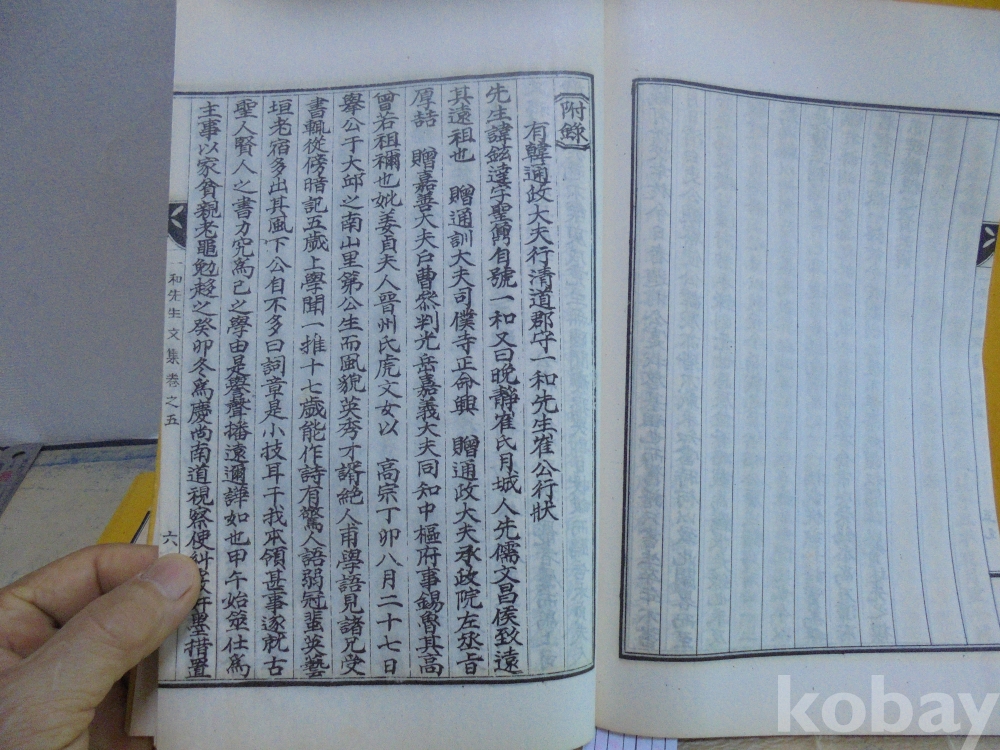 附錄
有韓通政大夫行清道郡守一和先生崔公行狀
先生諱鉉達字聖肅自號一和又曰晚靜崔氏月城人先儒文昌侯致遠
其遠祖也 贈通訓大夫司僕寺正命興 贈通政大夫承政院左丞旨
厚喆 贈嘉善大夫戶曹叅判光岳嘉義大夫同知中樞府事錫魯其高
曾若祖禰也妣姜貞夫人晉州氏虎文女以 高宗丁卯八月二十七日
擧公于大邱之南山里第公生而風貌英秀才諝絶人甫學語見諸兄受
書輒從傍暗記五歲上學聞一推十七歲能作詩有驚人語弱冠輩英藝
垣老宿多出其風下公自不多曰詞章是小技耳干我本領甚事遂就古
聖人賢人之書力究爲己之學由是譽聲播遠邇譁如也甲午始筮仕爲
主事以家貧親老黽勉趍之癸卯冬爲慶尚南道視察使糾 墨措置
和先生文集卷之五
六
kobay